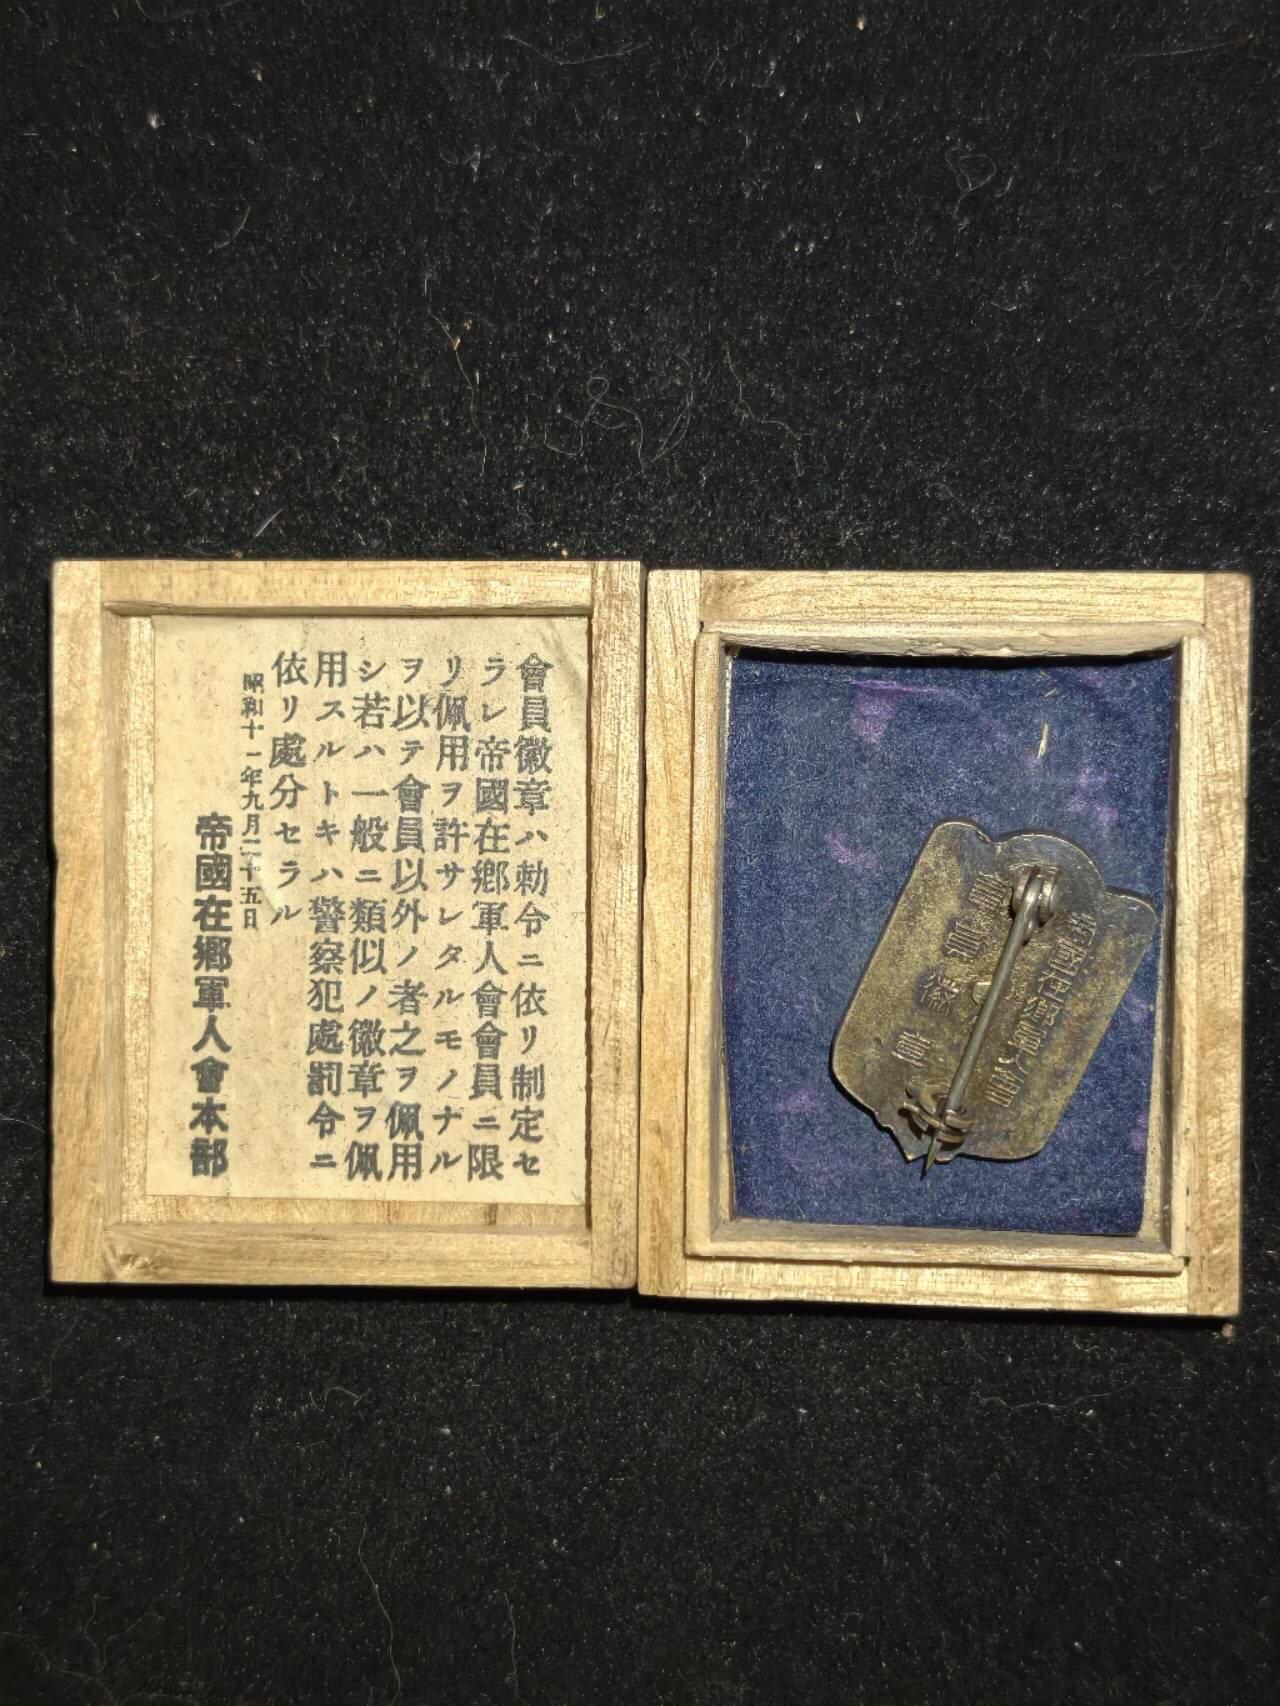 會員徽章ハ勅令ニ依リ制定セ
ラレ帝國在郷軍人會會員ニ限
リ佩用ヲ許サレタルモノナル
ヲ以テ會員以外ノ者之ヲ佩用
シ若ハ一般ニ類似ノ徽章ヲ佩
用スルトキハ警察犯處罰令ニ
依リ處分セラル
昭和十一年九月二十五日
帝國在郷軍人會本部
帝國在郷軍人會
會員徽章